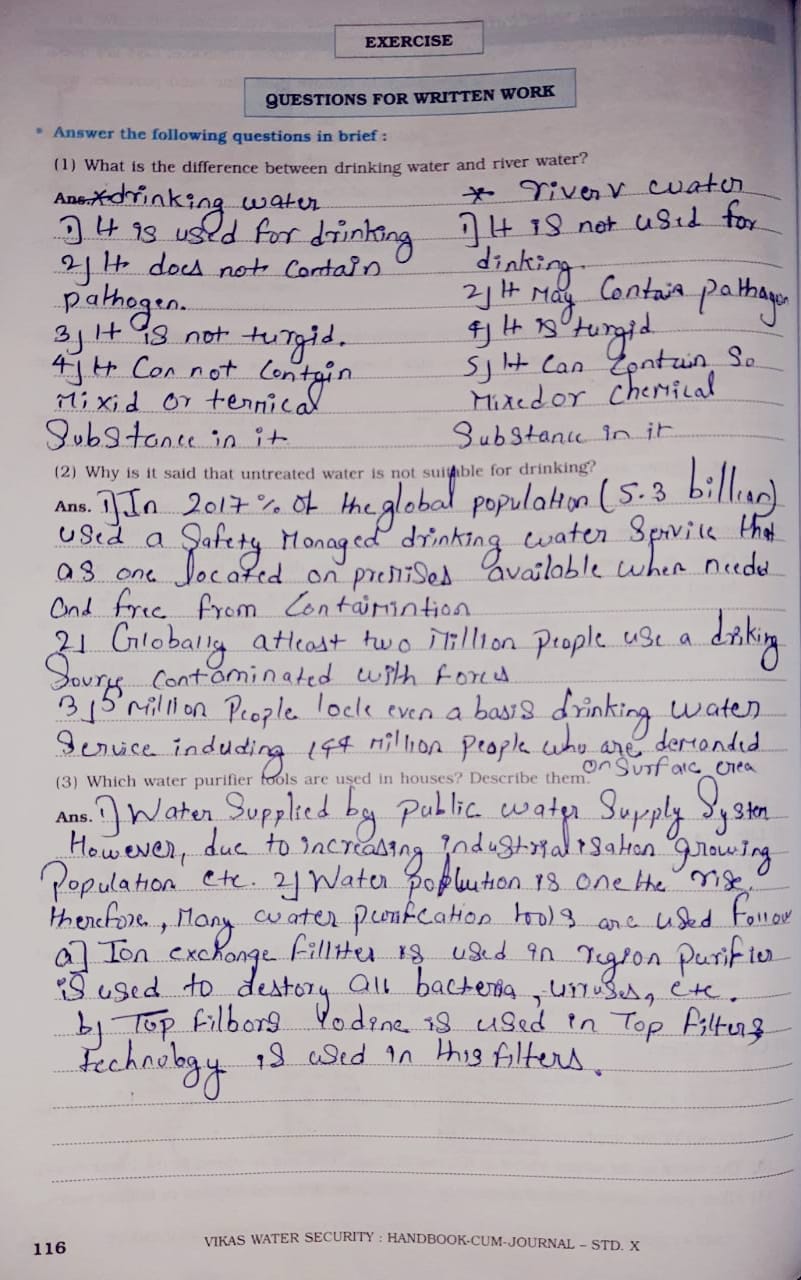 EXERCISE
QUESTIONS FOR WRITTEN WORK
* Answer the following questions in brief :
(1) What is the difference between drinking water and river water?
Ans. * drinking water * river v water
1] It is used for drinking 1] It is not used for
2] It does not contain dinking.
pathogen. 2] It May Contain pathagen
3] It is not turgid. 4] It is turgid
4] It Can not Contain 5] It Can Contain So
Mixid or termical Mixed or Chemical
Substance in it Substance in it
(2) Why is it said that untreated water is not suitable for drinking?
Ans. 1] In 2017 % of the global population (5.3 billian)
used a Safety Managed drinking water Service that
as one located on premises available when needed
and free from Contaimintion
2] Globally atleast two million people use a drinking
Sourye contaminated with
3] million People lock even a basis drinking water
Service including 144 million people who are demanded
on Surface area
(3) Which water purifier tools are used in houses? Describe them.
Ans. 1] Water Supplied by public water Supply System
However, due to increasing industrialisation growing
Population etc. 2] Water pollution is one the rise.
therefore, Many water purification tools are used Follow
a] Ion exchange fillter is used in region purifier
is used to destory all bacteria, viruses, etc.
b] Top filbors Yodine is used in Top filters
technology is used in this filters.
116 VIKAS WATER SECURITY : HANDBOOK-CUM-JOURNAL – STD. X